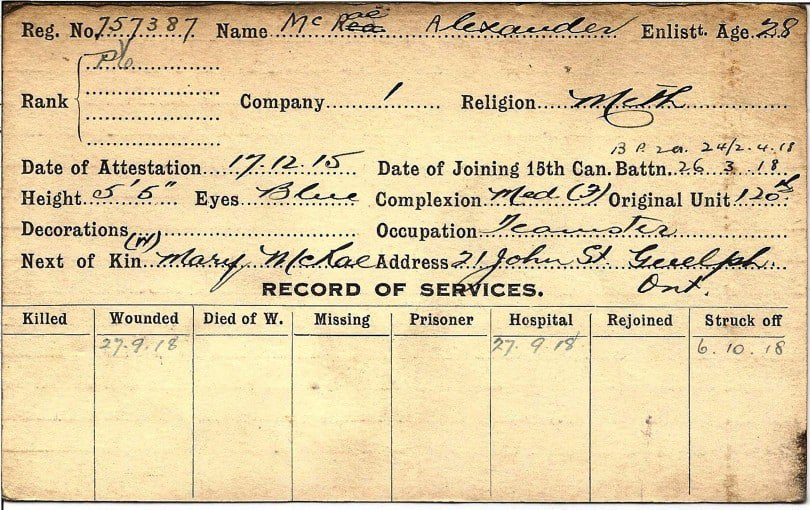 Reg. No. 757387 Name Mc Rae Alexander Enlistt. Age 28
Pte
Rank Company 1 Religion Meth
B.P. 2a. 24/2.4.18
Date of Attestation 17.12.15 Date of Joining 15th Can. Battn. 26.3.18.
Height 5'5" Eyes Blue Complexion Med (F) Original Unit 120th
Decorations Occupation Teamster
Next of Kin (W) Mary McRae Address 21 John St. Guelph. Ont.
RECORD OF SERVICES.
Killed Wounded Died of W. Missing Prisoner Hospital Rejoined Struck off
27.9.18 27.9.18 6.10.18